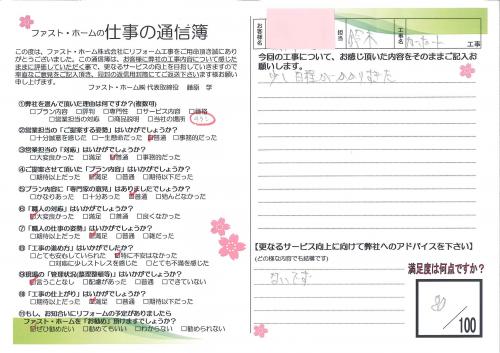 ファスト・ホームの仕事の通信簿
この度は、ファスト・ホーム株式会社にリフォーム工事をご用命頂き誠にあり
がとうございました。この通信簿は、お客様に弊社の工事内容について感じた
ままに評価していただく事で、更なるサービスの向上を目指していきますので
率直なご意見をご記入頂き、同封の返信用封筒にてご返送下さいます様お願い
申し上げます。
ファスト・ホーム㈱ 代表取締役 藤原 学
①弊社を選んで頂いた理由は何ですか?(複数可)
□プラン内容 □評判 □専門性 □サービス内容 □価格
□営業担当の対応 □商品説明 □当社の場所
②営業担当の「ご提案する姿勢」はいかがでしょうか?
□十分誠意を感じた □一生懸命だった □普通 □事務的だった
③営業担当の「対応」はいかがでしょうか?
□大変良かった □満足 □普通 □事務的だった
④ご提案させて頂いた「プラン内容」はいかがでしょうか?
□期待以上だった □満足 □普通 □期待以下だった
⑤プラン内容に「専門家の意見」はありましたでしょうか?
□かなりあった □十分あった □普通 □殆んどなかった
⑥「職人の対応」はいかがでしょうか?
□大変良かった □満足 □普通 □良くなかった
⑦「職人の仕事の姿勢」はいかがでしょうか?
□期待以上だった □満足 □普通 □雑だった
⑧「工事の進め方」はいかがでしたか?
□とても安心していられた □特に不安はなかった
□対応に少しストレスを感じた □とても不満を感じた
⑨現場の「管理状況(整理整頓等)」はいかがでしたか?
□言うことなし □配慮があった □普通 □できていない
⑩「工事の仕上がり」はいかがでしょうか?
□期待以上だった □満足 □普通 □期待以下だった
⑪もし、お知合いにリフォームの予定がありましたら
ファスト・ホームを「お勧め」頂けますでしょうか?
□ぜひ勧めたい □勧めてもいい □わからない □勧められない
お客様名
担当
鈴木
工事
今回の工事について、お感じ頂いた内容をそのままご記入お
願いします。
少し日程がかかりました
【更なるサービス向上に向けて弊社へのアドバイスを下さい】
(どの様な内容でも結構です)
ないです
満足度は何点ですか?
/100